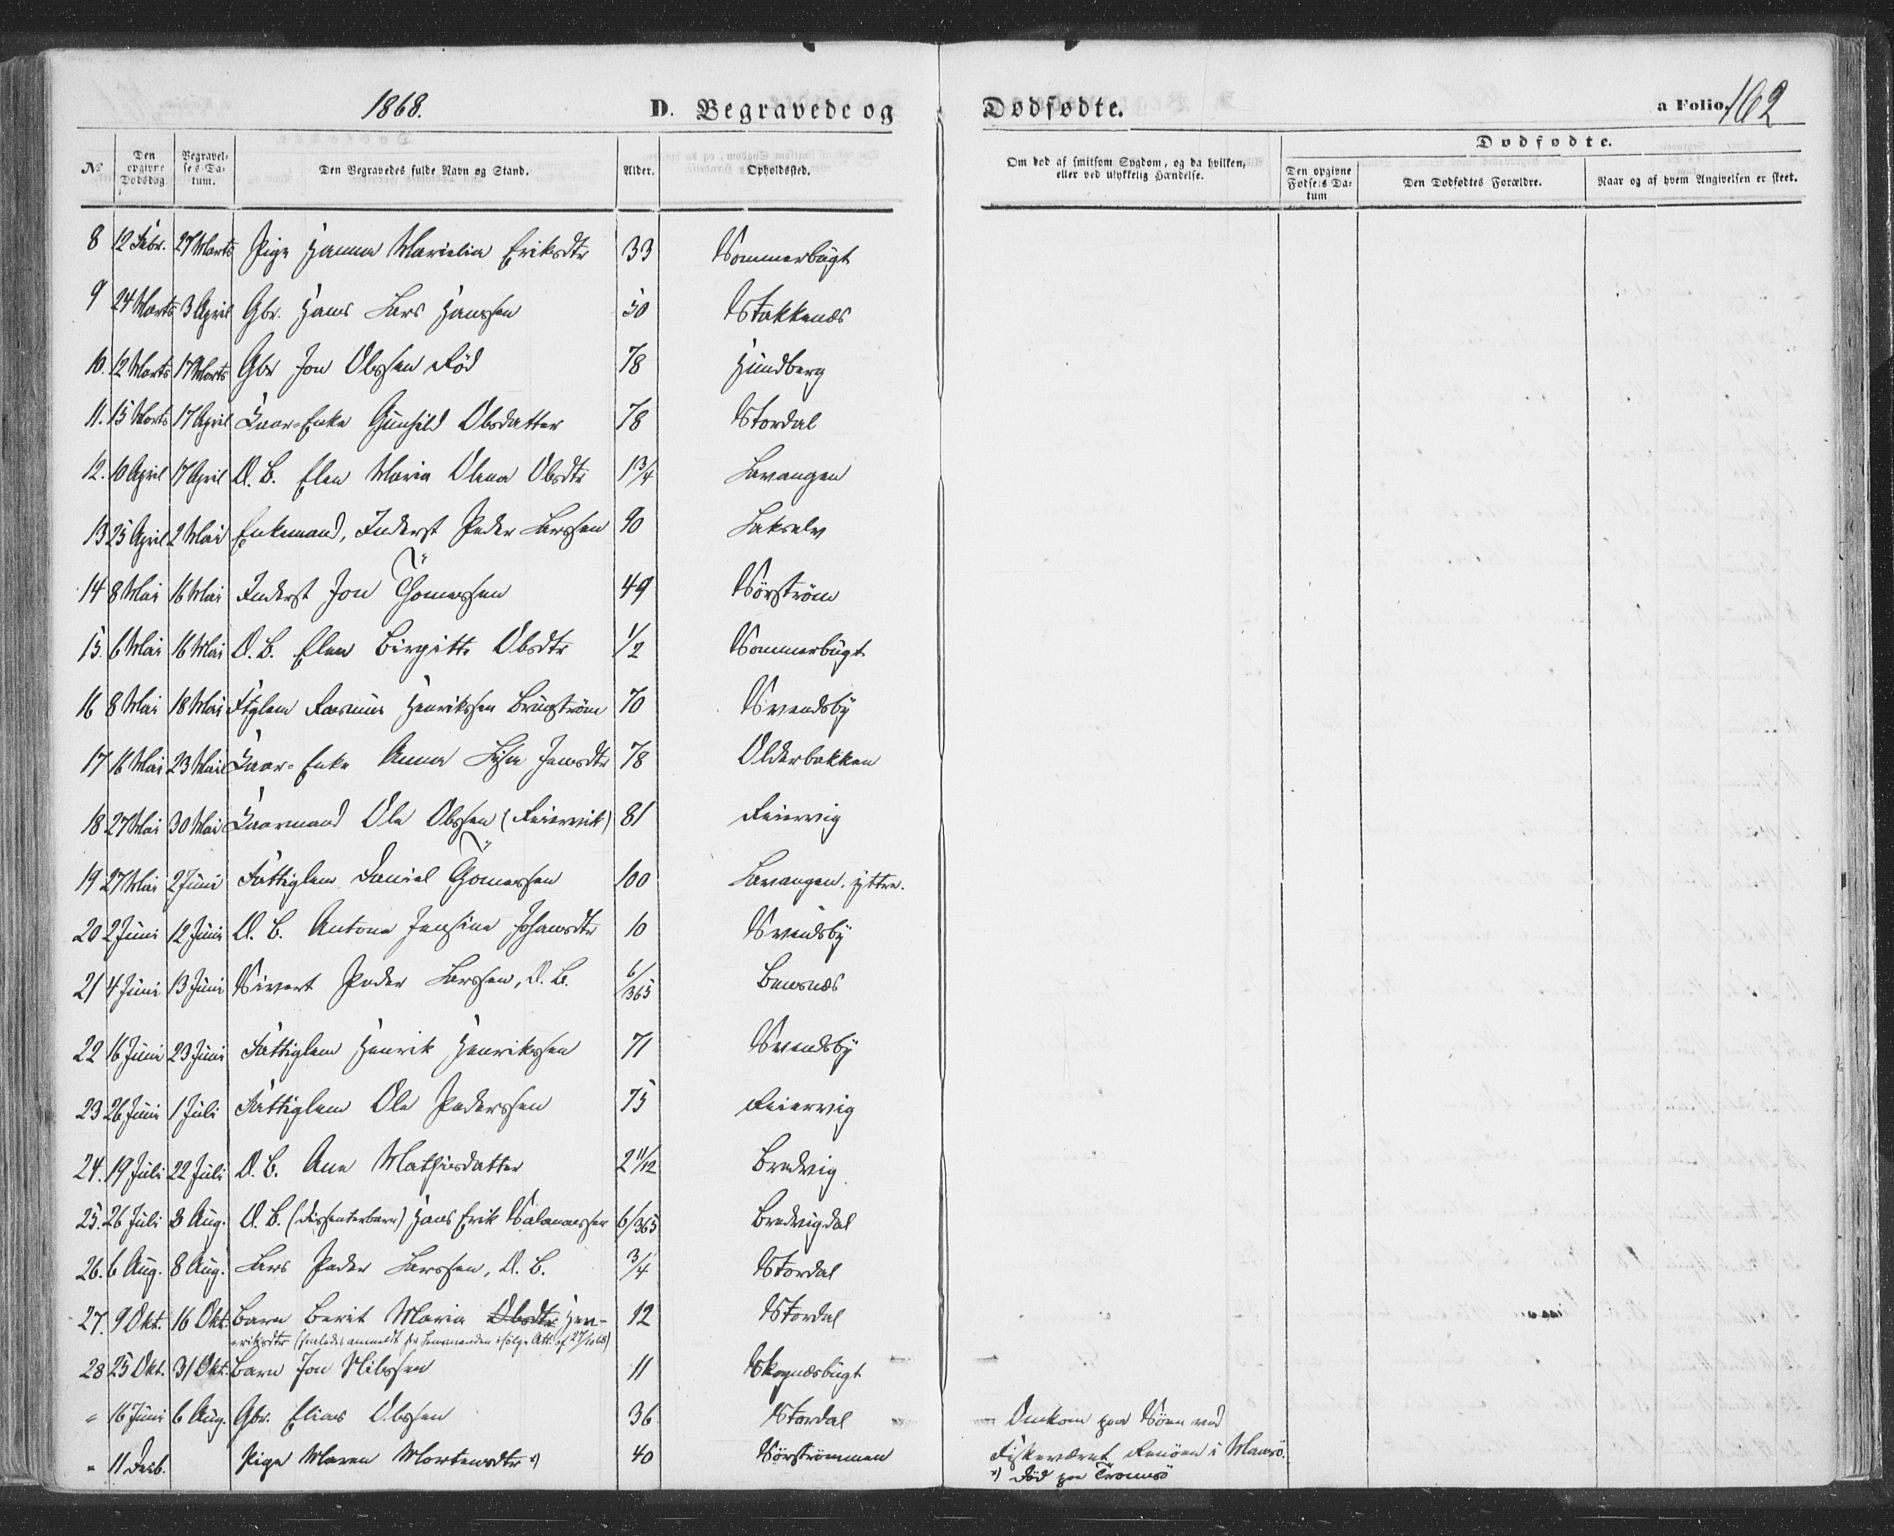 1868.
D. Begravede og Dødfødte.
a Folio 162
№ Den opgivne Dødsdag. Begravelses-Datum. Den Begravedes fulde Navn og Stand. Alder. Opholdssted. Om død af smitsom Sygdom, og da hvilken, eller ved ulykkelig Hændelse.
Dødfødte.
Den opgivne Fødsels Datum Den Dødfødtes Forældre. Naar og af hvem Angivelsen er skeet.
8 12 Febr. 27 Marts Pige Hanna Eriksdtr 33 Sommerbugt
9 24 Marts 3 April Gbr. Hans Lars Hanssen 50 Stakkenæs
10. 12 Marts 17 Marts Gbr Jon Olssen Rød 78 Hundberg
11. 15 Marts 17 April Kaar-Enke Gunhild Olsdatter 78 Stordal
12. 10 April 17 April D. B. Elen Maria Olena Olsdtr 1 3/4 Lavangen
13 25 April 2 Mai Enkemand, Inderst Peder Larssen 90 Lakselv
14 8 Mai 16 Mai Inderst Jon Thomassen 49 Sørstrøm
15. 6 Mai 16 Mai D. B. Elen Birgitte Olsdtr 1/2 Sommerbugt
16 8 Mai 18 Mai Ftglem Rasmus Henrikssen 70 Svendsby
17 16 Mai 23 Mai Kaar-Enke Anna Lisa Jensdtr 78 Olderbakken
18 27 Mai 30 Mai Kaarmand Ole Olssen (Reiervik) 81 Reiervig
19 27 Mai 2 Juni Fattiglem Daniel Thomassen 100 Lavangen, yttre.
20 2 Juni 12 Juni D. B. Antona Jensine Johansdtr 10 Svendsby
21 4 Juni 13 Juni Sivert Peder Larssen, D. B. 6/365 Bensnæs
22 16 Juni 23 Juni Fattiglem Henrik Henrikssen 71 Svendsby
23 26 Juni 1 Juli Fattiglem Ole Pederssen 75 Reiervig
24. 19 Juli 22 Juli D. B. Ane Mathisdatter 2 11/12 Bredvig
25. 26 Juli 3 Aug. D. B. (Dissenterbarn) Hans Erik Salamonssen 6/365 Bredvigdal
26. 6 Aug. 8 Aug. Lars Peder Larssen, D. B. 3/4 Stordal
27. 9 Okt. 16 Okt. Barn Berit Maria Olsdtr Hen- 12 Stordal
riksdtr (feilados anmeldt for Lensmanden ifølge Att. af 27/10 68)
28 25 Okt. 31 Okt. Barn Jon Nilssen 11 Skognæsbugt
" 16 Juni 6 Aug. Gbr. Elias Olssen 36 Stordal Omkom paa Søen ved
Fiskeværet Renøen i Maasø.
" 11 Febr. Pige Maren Mortensdtr *) 40 Sørstrømmen
*) Død paa Tromsø